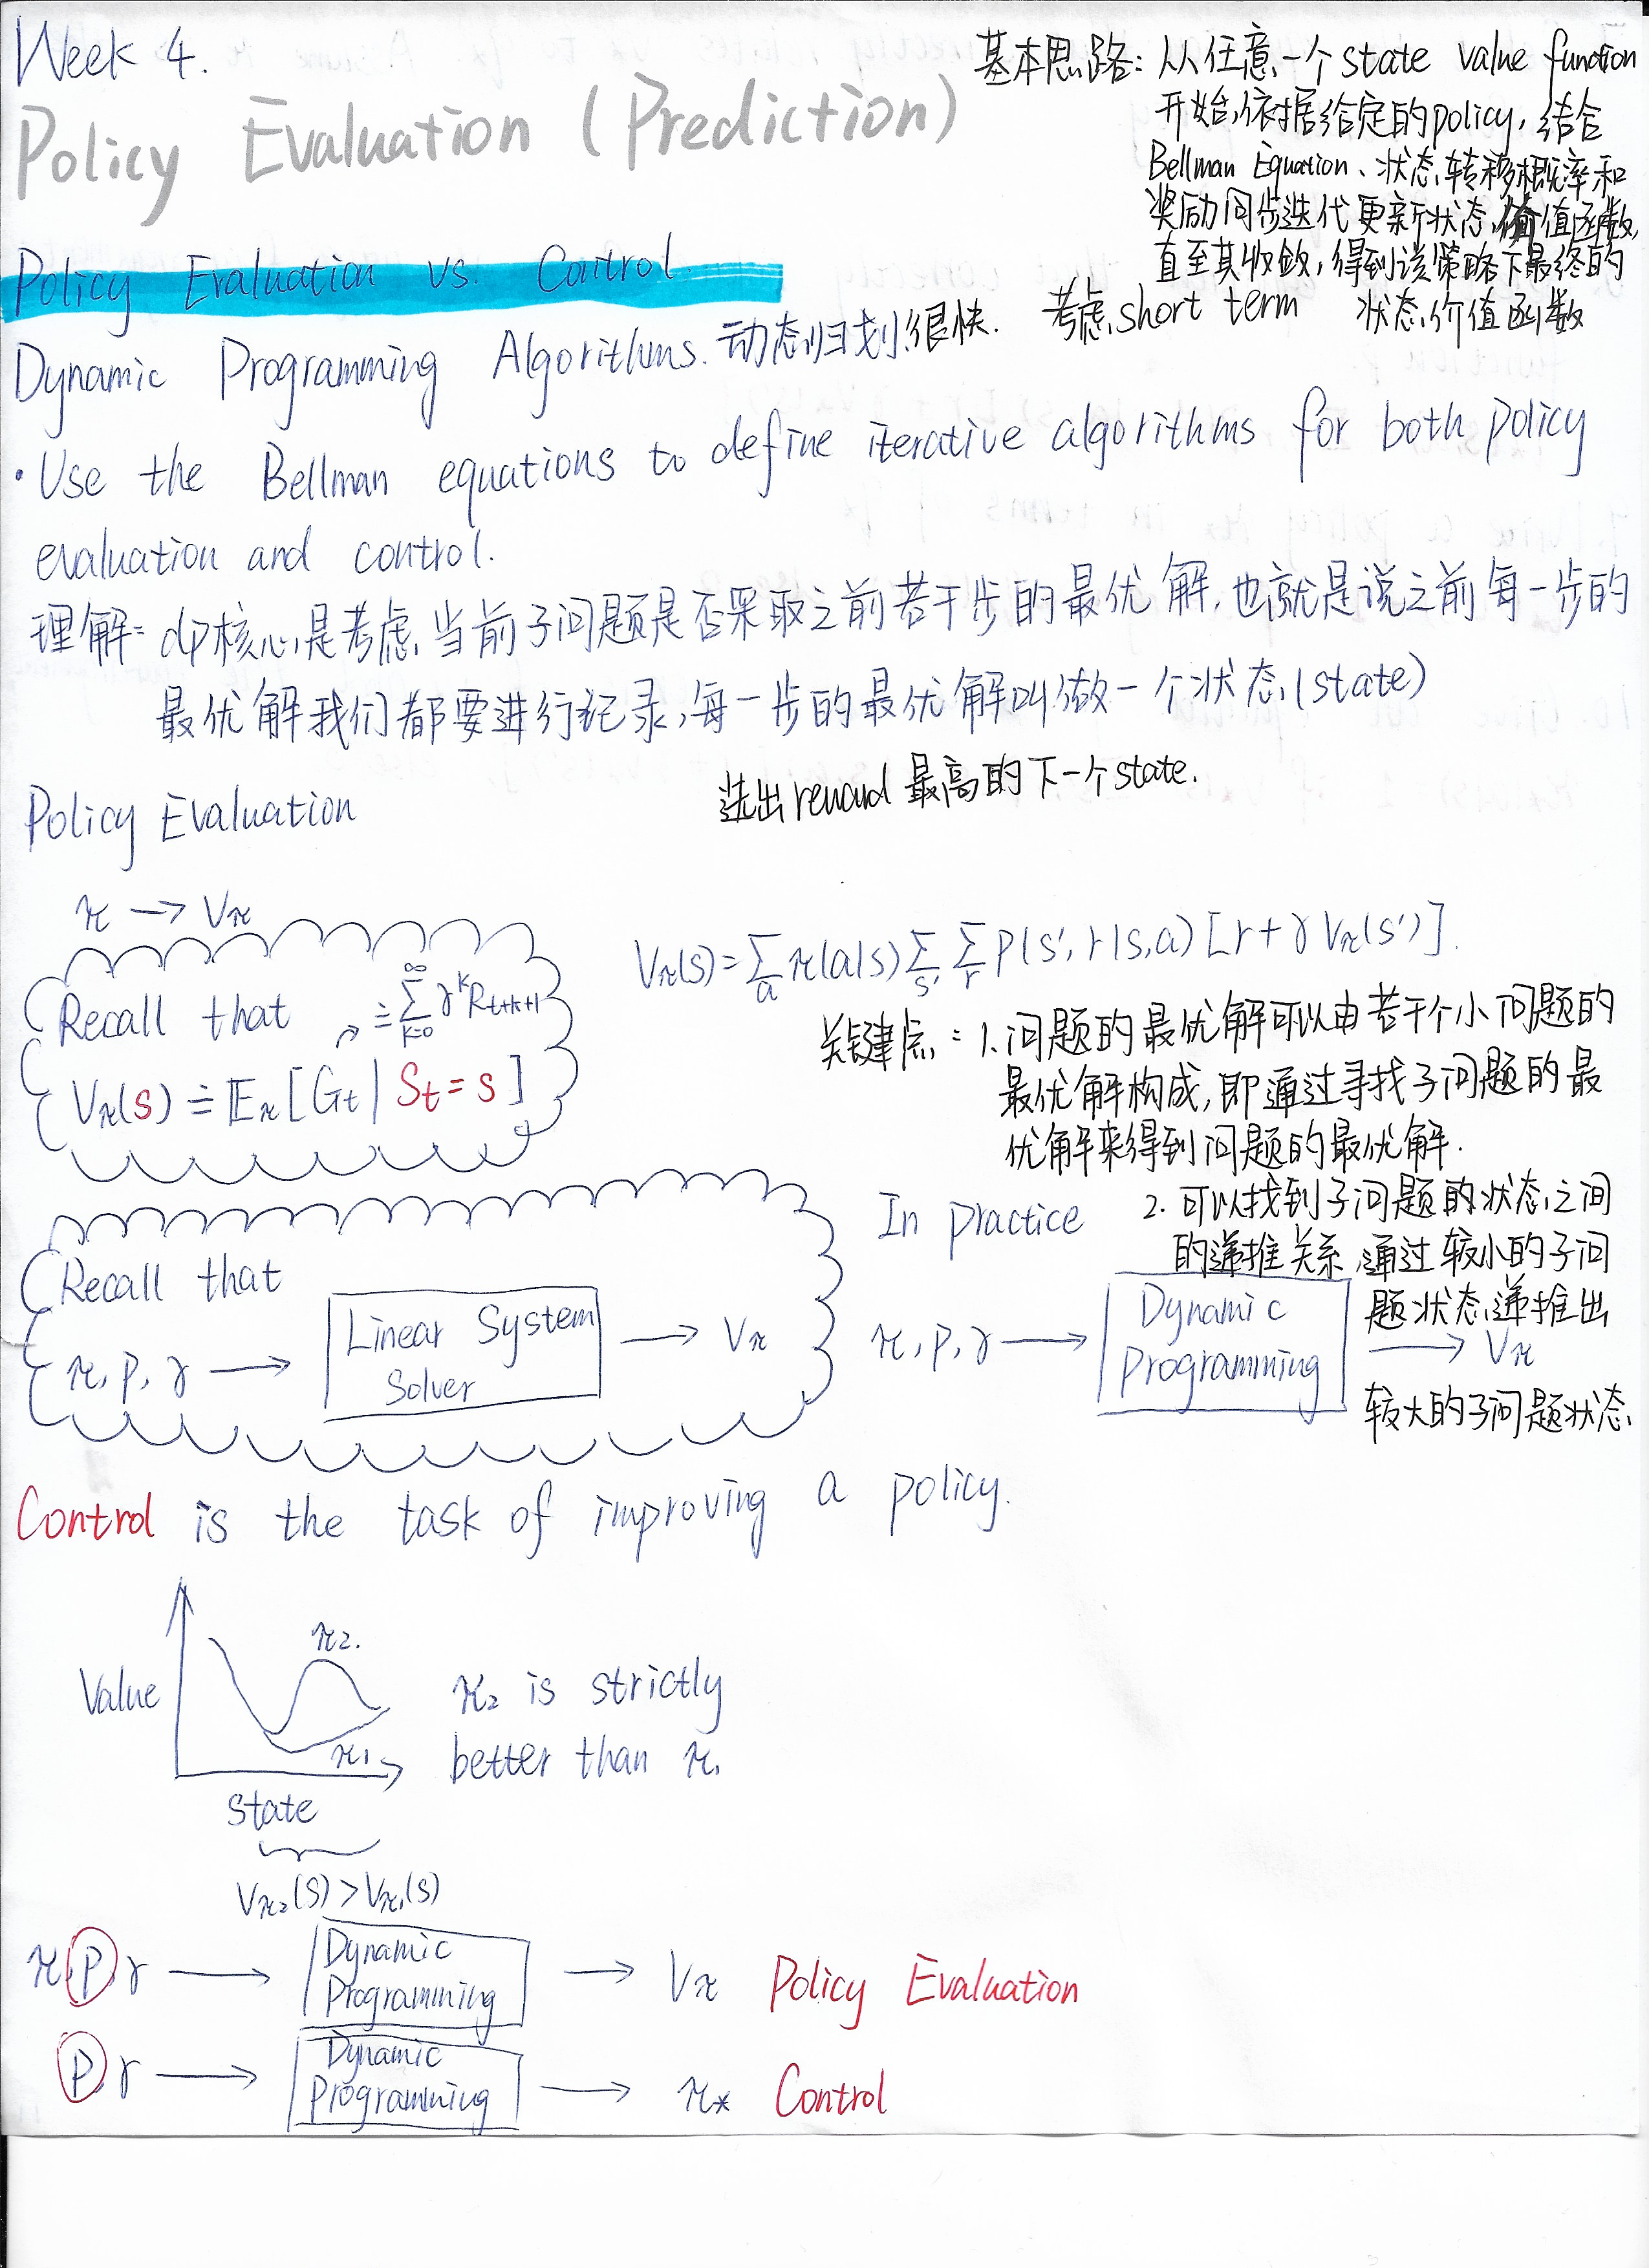 Week 4.
Policy Evaluation (Prediction)
基本思路: 从任意一个state value function
开始,依据给定的policy, 结合
Bellman Equation、状态转移概率和
奖励同步迭代更新状态价值函数,
直至其收敛, 得到该策略下最终的
状态价值函数
Policy Evaluation vs. Control
Dynamic Programming Algorithms. 动态归划很快. 考虑short term
· Use the Bellman equations to define iterative algorithms for both policy
evaluation and control.
理解: dp核心是考虑当前子问题是否采取之前若干步的最优解, 也就是说之前每一步的
最优解我们都要进行纪录, 每一步的最优解叫做一个状态(state)
选出reward最高的下一个state.
Policy Evaluation
π → Vπ
Recall that ≐ ∑_{k=0}^{∞} γ^k R_{t+k+1}
Vπ(s) ≐ 𝔼π[Gt | St = s]
Vπ(s) = ∑_a π(a|s) ∑_{s'} ∑_r p(s', r | s, a) [r + γ Vπ(s')].
关键点: 1. 问题的最优解可以由若干个小问题的
最优解构成, 即通过寻找子问题的最
优解来得到问题的最优解.
2. 可以找到子问题的状态之间
的递推关系, 通过较小的子问
题状态递推出
较大的子问题状态
Recall that
π, p, γ → Linear System
Solver → Vπ
In practice
π, p, γ → Dynamic
Programming → Vπ
Control is the task of improving a policy.
Value
π2.
π1
State
Vπ2(s) > Vπ1(s)
π2 is strictly
better than π1
π p γ → Dynamic
Programming → Vπ Policy Evaluation
p γ → Dynamic
Programming → π* Control